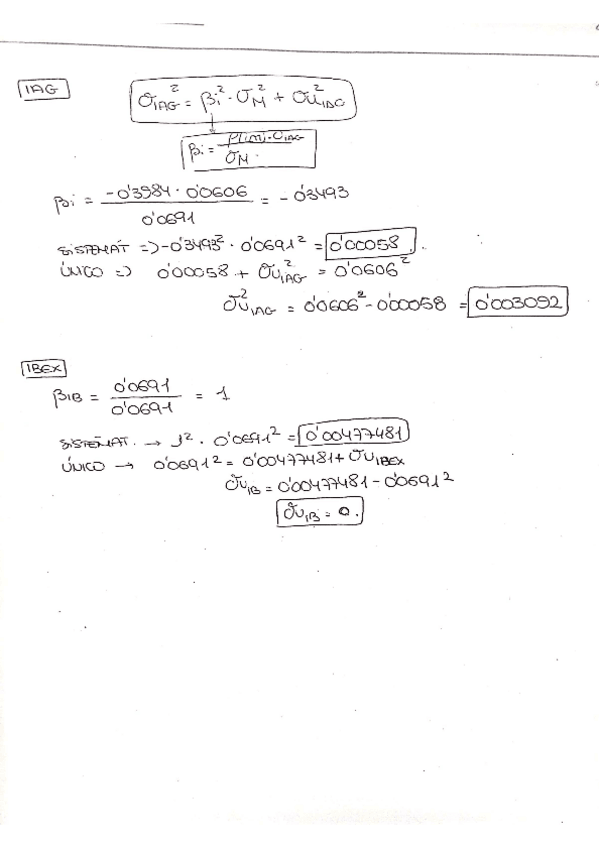 IAG
σ²IAG = βi² · σM² + σu²IAG
βi = ρ(i,m) · σIAG / σM
βi = -0'3984 · 0'0606 / 0'0691 = -0'3493
SISTEMÁT => -0'3493² · 0'0691² = 0'00058
ÚNICO => 0'00058 + σu²IAG = 0'0606²
σu²IAG = 0'0606² - 0'00058 = 0'003092
IBEX
βIB = 0'0691 / 0'0691 = 1
SISTEMAT. → 1² · 0'0691² = 0'00477481
ÚNICO → 0'0691² = 0'00477481 + σuIBEX
σuIB = 0'00477481 - 0'0691²
σuIB = 0.